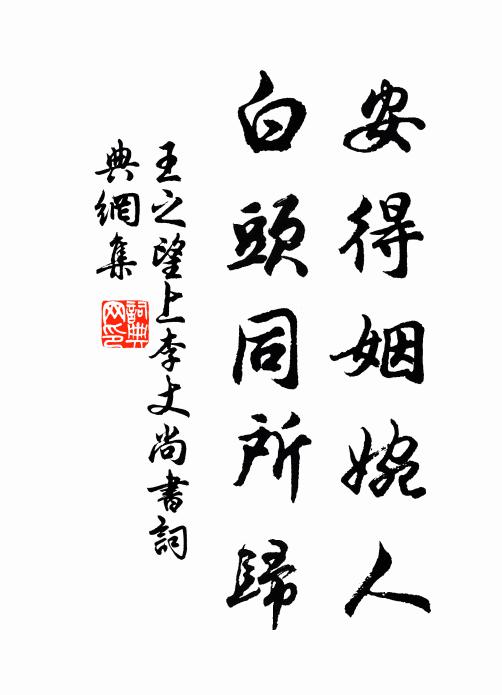 安得姻婉人
白頭同所歸
王之望上李丈尚書詞
典網集
詞典网印